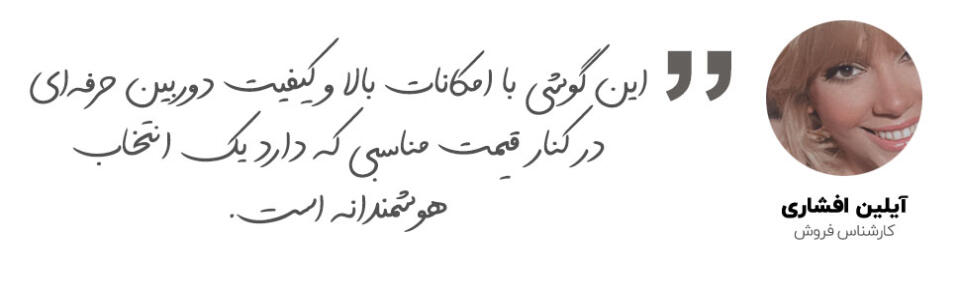 این گوشی با امکانات بالا و کیفیت دوربین حرفه‌ای
در کنار قیمت مناسبی که دارد یک انتخاب
هوشمندانه است.
آیلین افشاری
کارشناس فروش